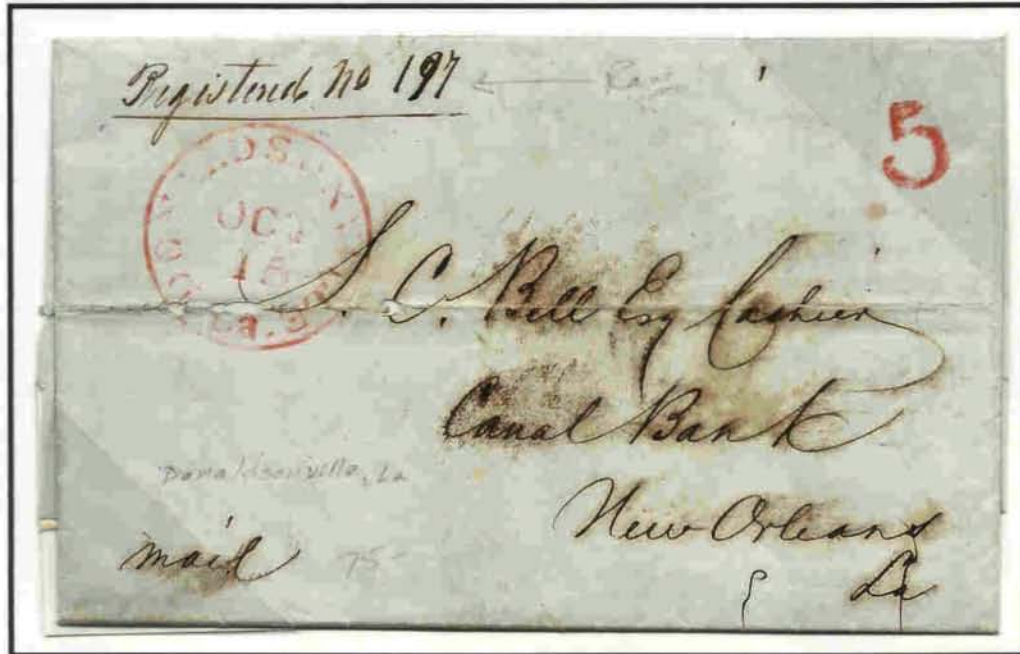 Registered No 197
5
OCT
18
La.
S. C. Bell Esq Cashier
Canal Bank
New Orleans
La
Donaldsonville, La
mail
75-